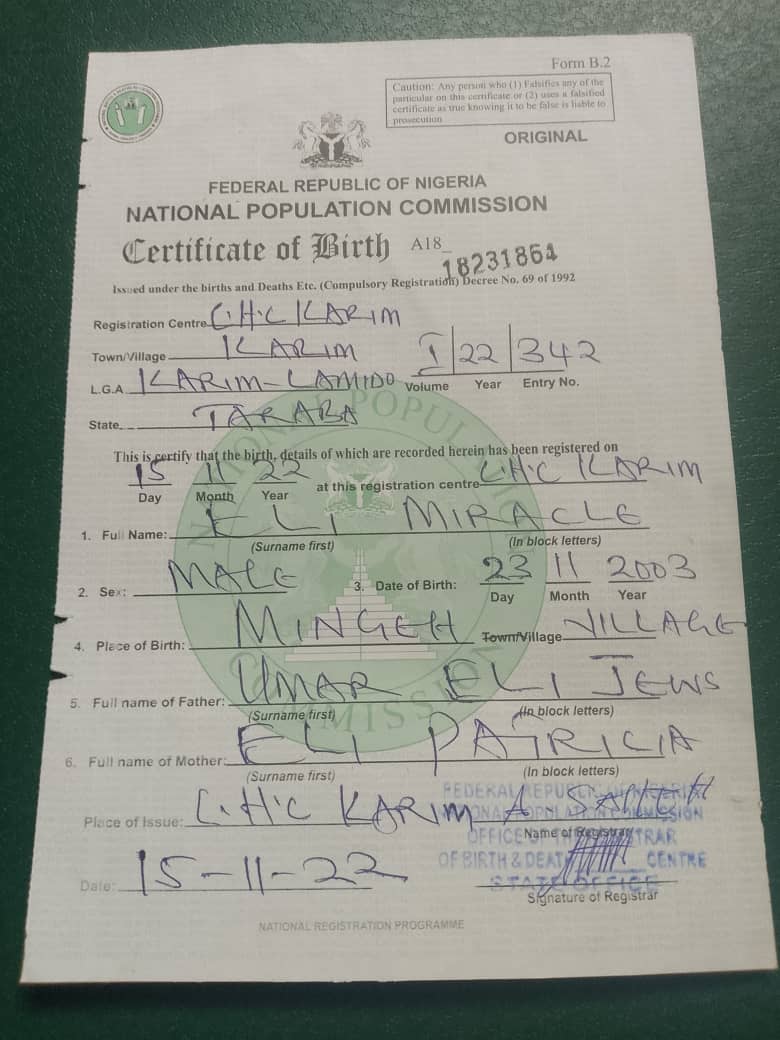 Form B.2
Caution: Any person who (1) Falsifies any of the
particular on this certificate or (2) uses a falsified
certificate as true knowing it to be false is liable to
prosecution
ORIGINAL
FEDERAL REPUBLIC OF NIGERIA
NATIONAL POPULATION COMMISSION
Certificate of Birth A18_ 18231864
Issued under the births and Deaths Etc. (Compulsory Registration) Decree No. 69 of 1992
Registration Centre C.H.C KARIM
Town/Village KARIM I 22 342
L.G.A KARIM-LAMIDO Volume Year Entry No.
State TARABA
This is certify that the birth, details of which are recorded herein has been registered on
15 11 22 at this registration centre C.H.C KARIM
Day Month Year
1. Full Name: ELI MIRACLE
(Surname first) (In block letters)
2. Sex: MALE 3. Date of Birth: 23 11 2003
Day Month Year
4. Place of Birth: MINGEH Town/Village VILLAGE
5. Full name of Father: UMAR ELI JEWS
(Surname first) (In block letters)
6. Full name of Mother: ELI PATRICIA
(Surname first) (In block letters)
Place of Issue: C.H.C KARIM
Name of Registrar
FEDERAL REPUBLIC OF NIGERIA
NATIONAL POPULATION COMMISSION
OFFICE OF THE REGISTRAR
OF BIRTH & DEATH CENTRE
STATE OFFICE
Date: 15-11-22
Signature of Registrar
NATIONAL REGISTRATION PROGRAMME
NATIONAL POPULATION COMMISSION